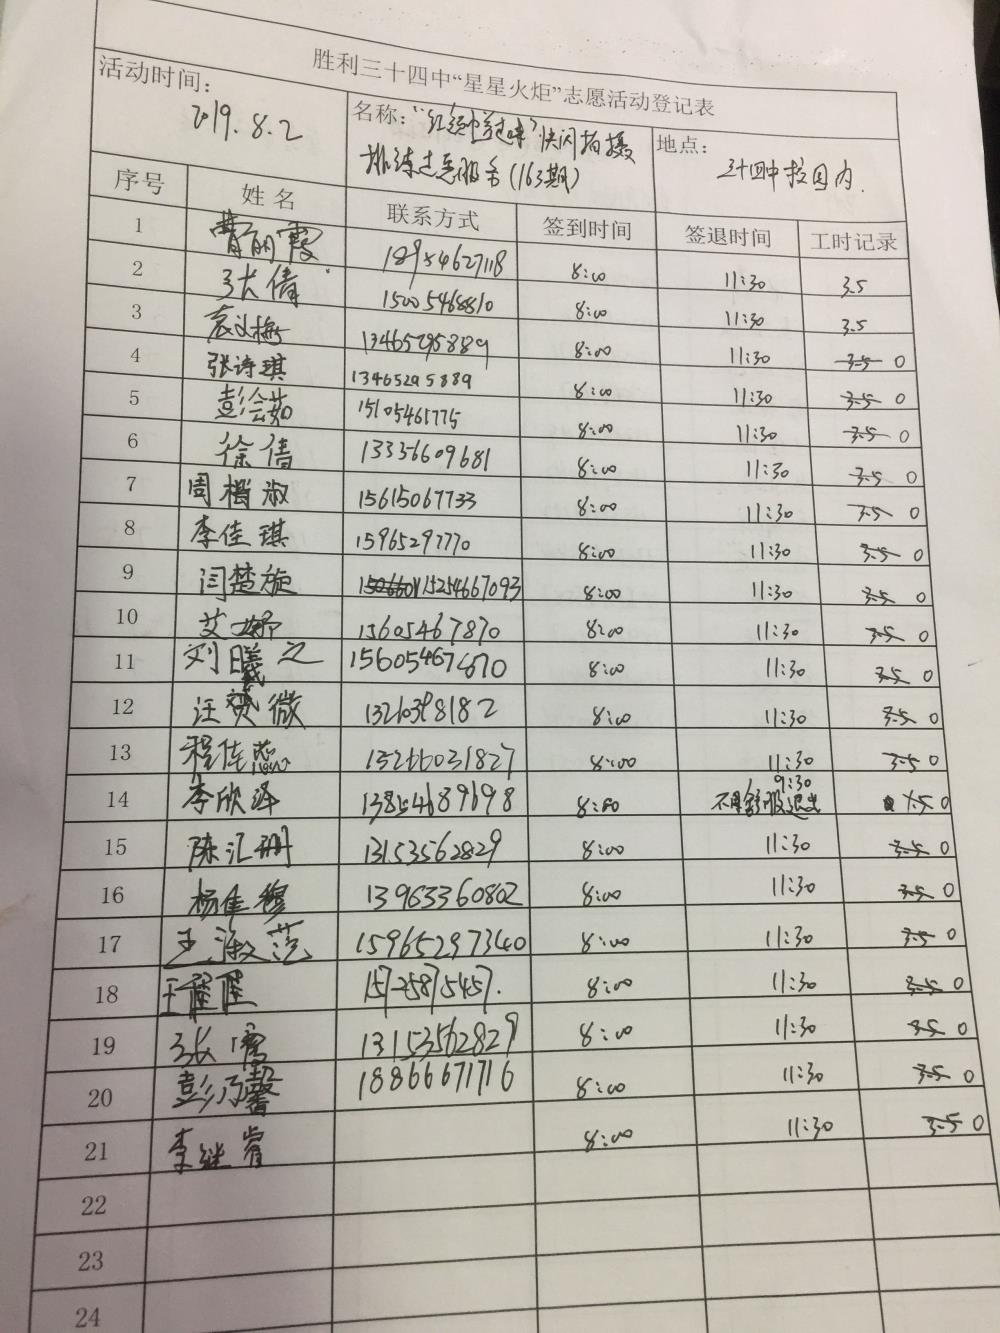 胜利三十四中“星星火炬”志愿活动登记表
活动时间: 2019.8.2 名称: 快闪拍摄 地点: 三十四中校园内.
排练志愿服务(163期)
序号 姓名 联系方式 签到时间 签退时间 工时记录
1 曹丽霞 18954627118 8:00 11:30 3.5
2 张倩 15005468810 8:00 11:30 3.5
3 13465295889 8:00 11:30 3.5 0
4 张诗琪 13465295889 8:00 11:30 3.5 0
5 彭会茹 15105461775 8:00 11:30 3.5 0
6 徐倩 13356609681 8:00 11:30 3.5 0
7 周楷淑 15615067733 8:00 11:30 3.5 0
8 李佳琪 15965297770 8:00 11:30 3.5 0
9 闫楚旋 15254667093 8:00 11:30 3.5 0
10 艾 15605467870 8:00 11:30 3.5 0
11 刘曦之 15605467670 8:00 11:30 3.5 0
12 汪 微 8:00 11:30 3.5 0
13 程佳蕊 13266031827 8:00 11:30 3.5 0
9:30
14 李欣泽 13854689698 8:00 退出 1.5 0
15 陈汇珊 13153562829 8:00 11:30 3.5 0
16 杨佳穆 13963360802 8:00 11:30 3.5 0
17 王淑范 15965297340 8:00 11:30 3.5 0
18 王 15725875457. 8:00 11:30 3.5 0
19 张 13153562829 8:00 11:30 3.5 0
20 彭乃馨 18866671716 8:00 11:30 3.5 0
21 李继睿 8:00 11:30 3.5 0
22
23
24